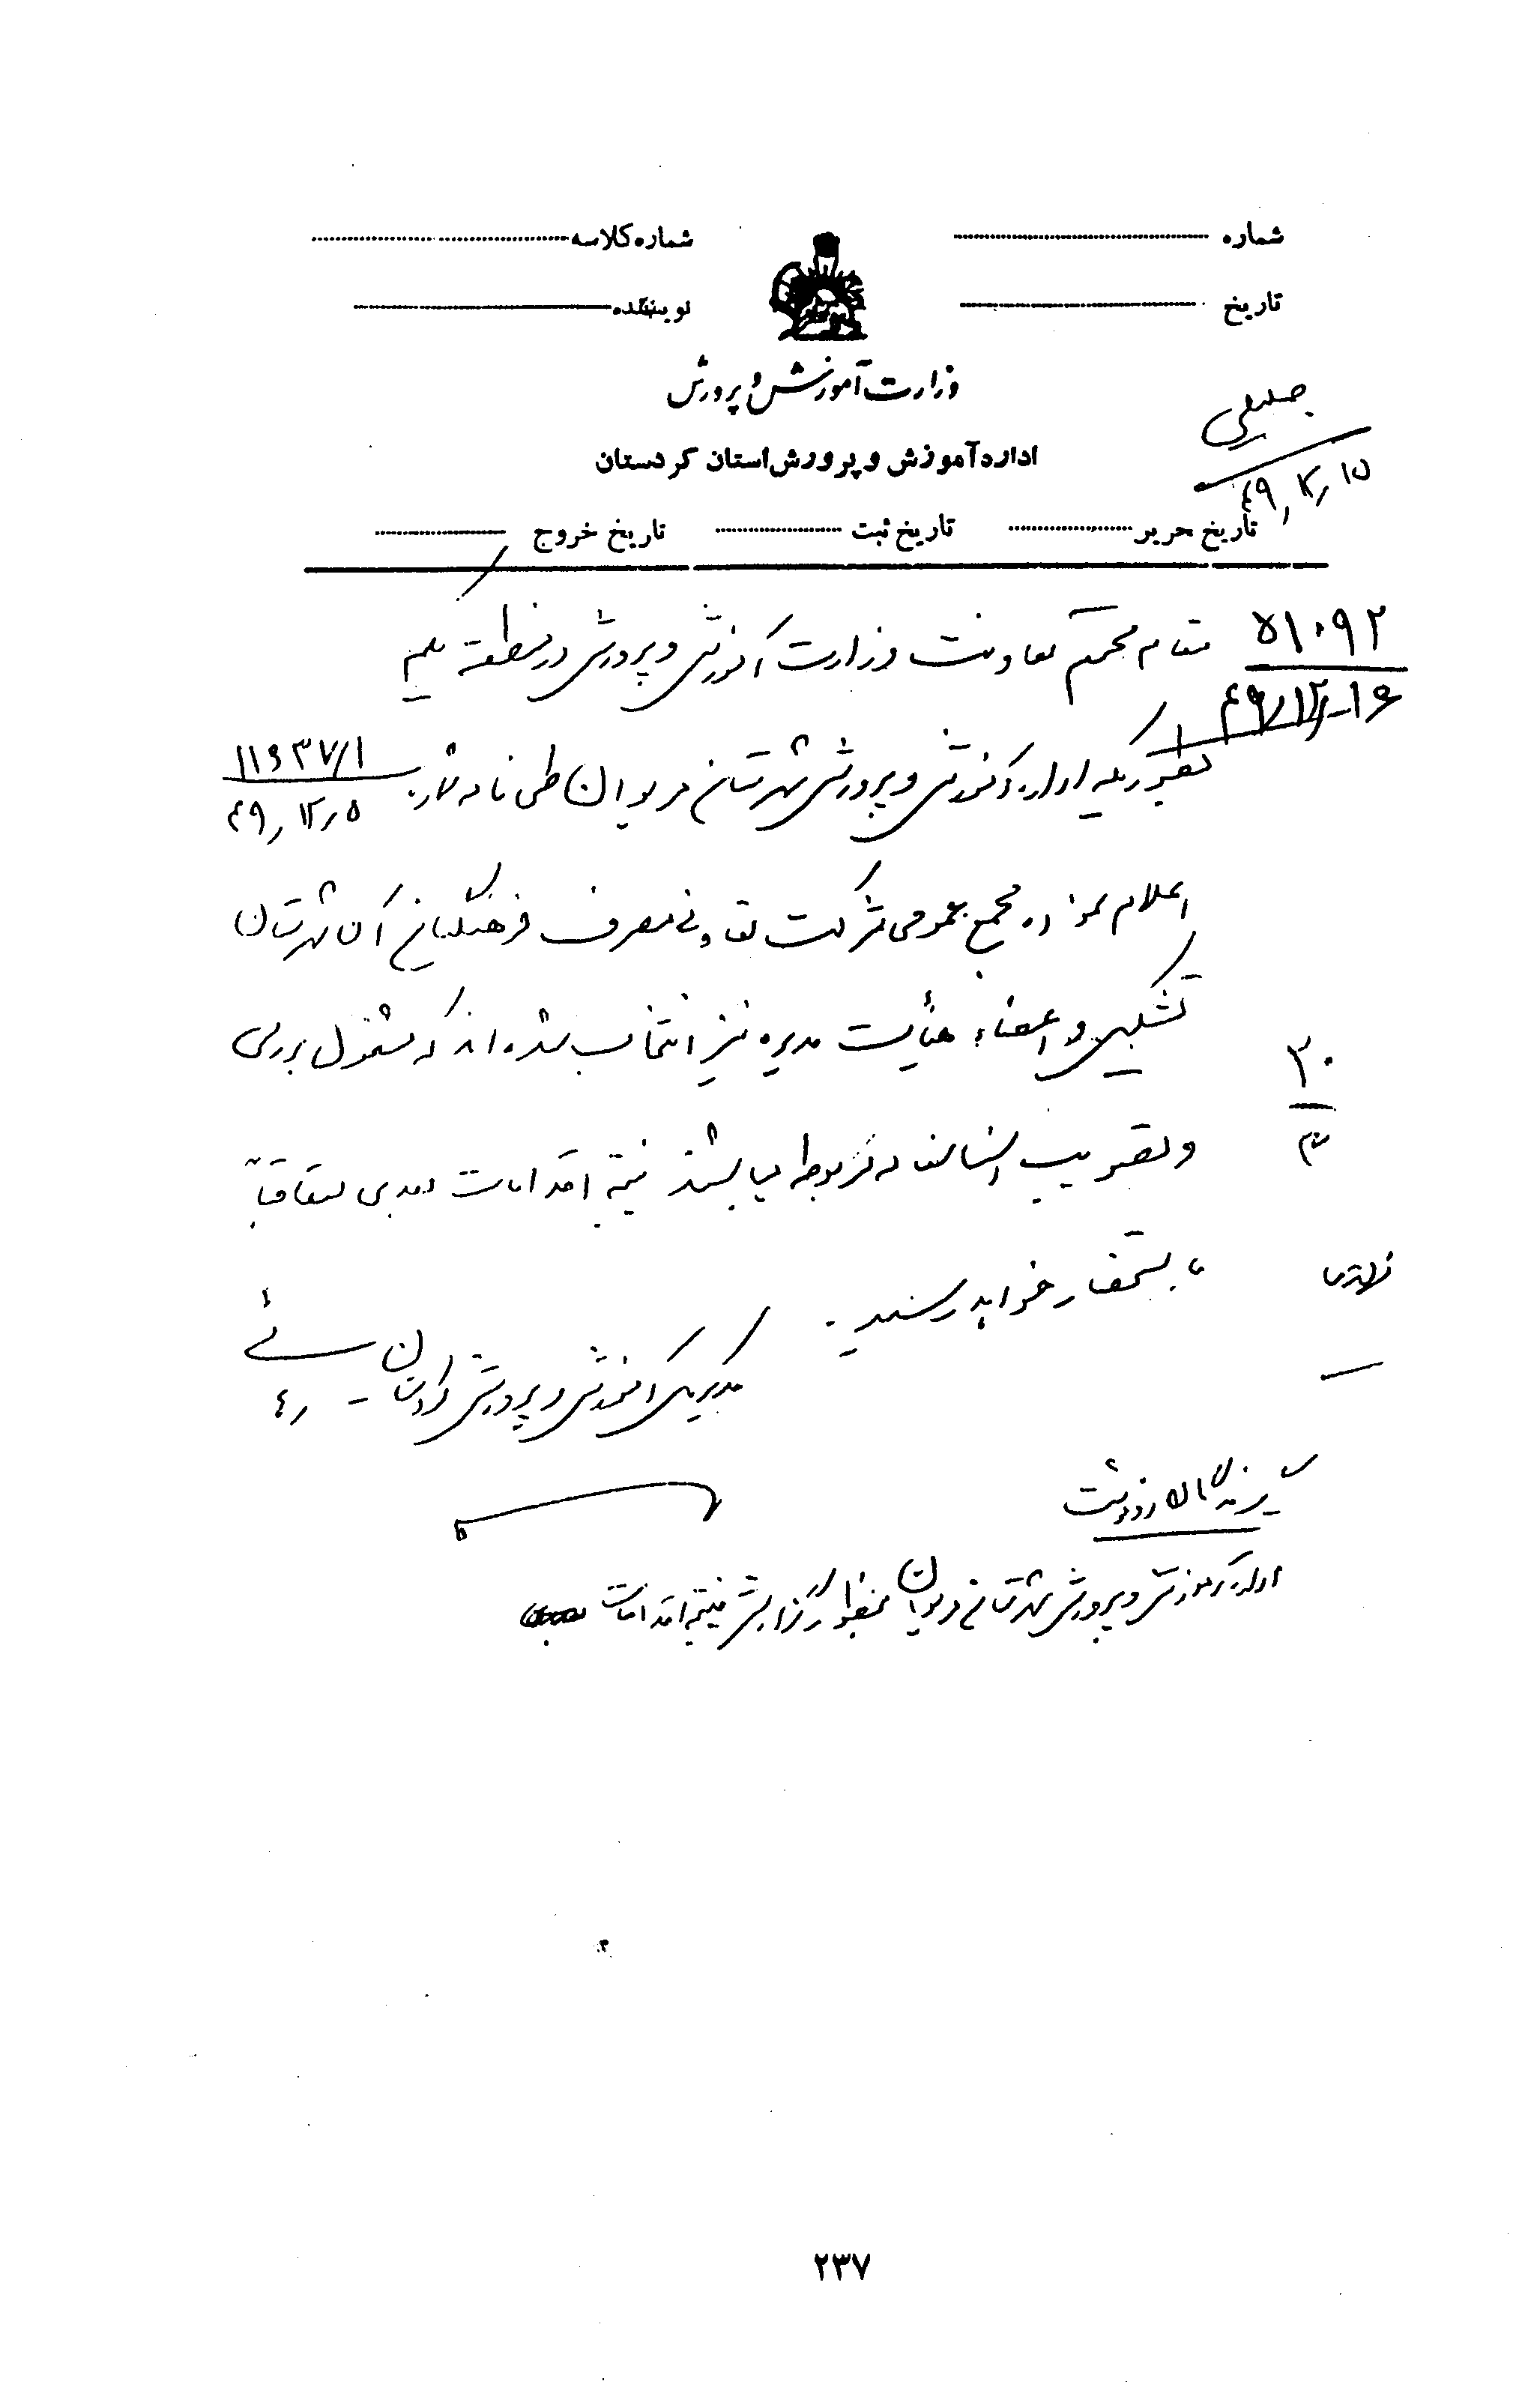 شماره
شماره کلاسه
تاریخ
نویسنده
وزارت آموزش و پرورش
اداره آموزش و پرورش استان کردستان
جلیلی
۴۹,۱۲,۱۵
تاریخ تحریر تاریخ ثبت تاریخ خروج
۵۱۰۹۲
۴۹/۱۲/۱۶
مقام محترم معاونت وزارت آموزش و پرورش در منطقه یکم
بطوریکه اداره آموزش و پرورش شهرستان مریوان طی نامه شماره ۱۱۶۳۷/۱
۴۹,۱۲,۵
اعلام نموده مجمع عمومی شرکت تعاونی مصرف فرهنگیان آن شهرستان
تشکیل و اعضاء هیأت مدیره نیز انتخاب شده‌اند که مشغول بررسی
و تصویب اساسنامه مربوطه میباشند نتیجه اقدامات بعدی متعاقباً
باستحضار خواهد رسید.
۲۰
۳
مدیر کل آموزش و پرورش کردستان -
گیرندگان رونوشت
اداره آموزش و پرورش شهرستان مریوان بمنظور گزارش نتیجه اقدامات
۲۳۷